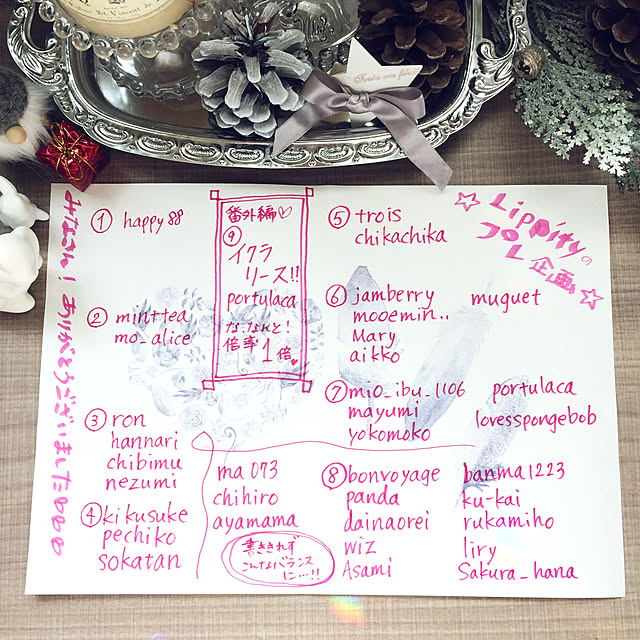 St. Vincent de
☆Lippityの
プレ
企画☆
みなさん！ありがとうございました
① happy88
② minttea
mo_alice
③ ron
hannari
chibimu
nezumi
④ kikusuke
pechiko
sokatan
ma073
chihiro
ayamama
書ききれず
こんなバランス
に…!!
番外編♡
⑨
イクラ
リース!!
portulaca
な、なんと！
倍率1倍♥
⑤ trois
chikachika
⑥ jamberry
mooemin..
Mary
aikko
muguet
⑦ mio_ibu_1106
mayumi
yokomoko
portulaca
lovesspongebob
⑧ bonvoyage
panda
dainaorei
wiz
Asami
banma1223
ku-kai
rukamiho
liry
Sakura_hana